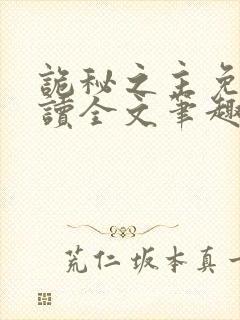 詭秘之主免
讀全文筆趣
荒仁坂本真一